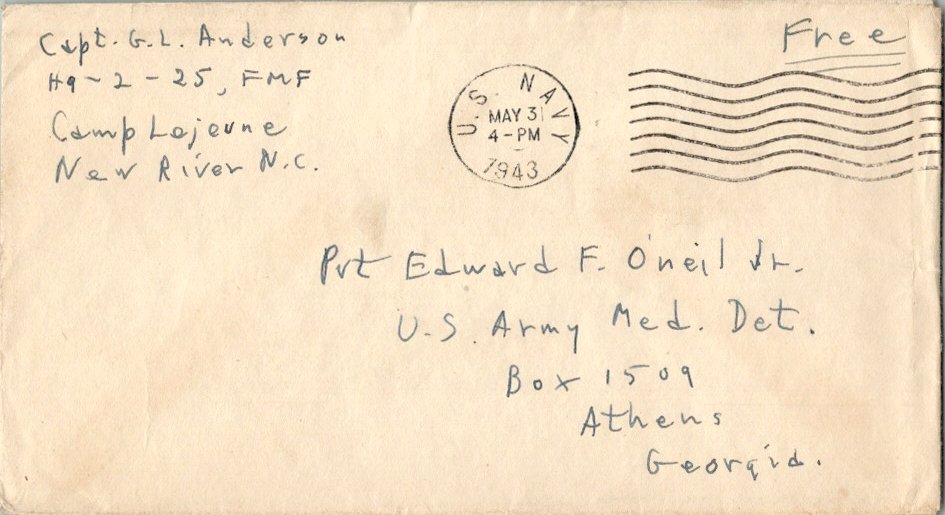 Capt. G.L. Anderson
Hq-2-25, FMF
Camp Lejeune
New River N.C.
U.S. NAVY
MAY 31
4-PM
1943
Free
Pvt Edward F. O'neil Jr.
U.S. Army Med. Det.
Box 1509
Athens
Georgia.